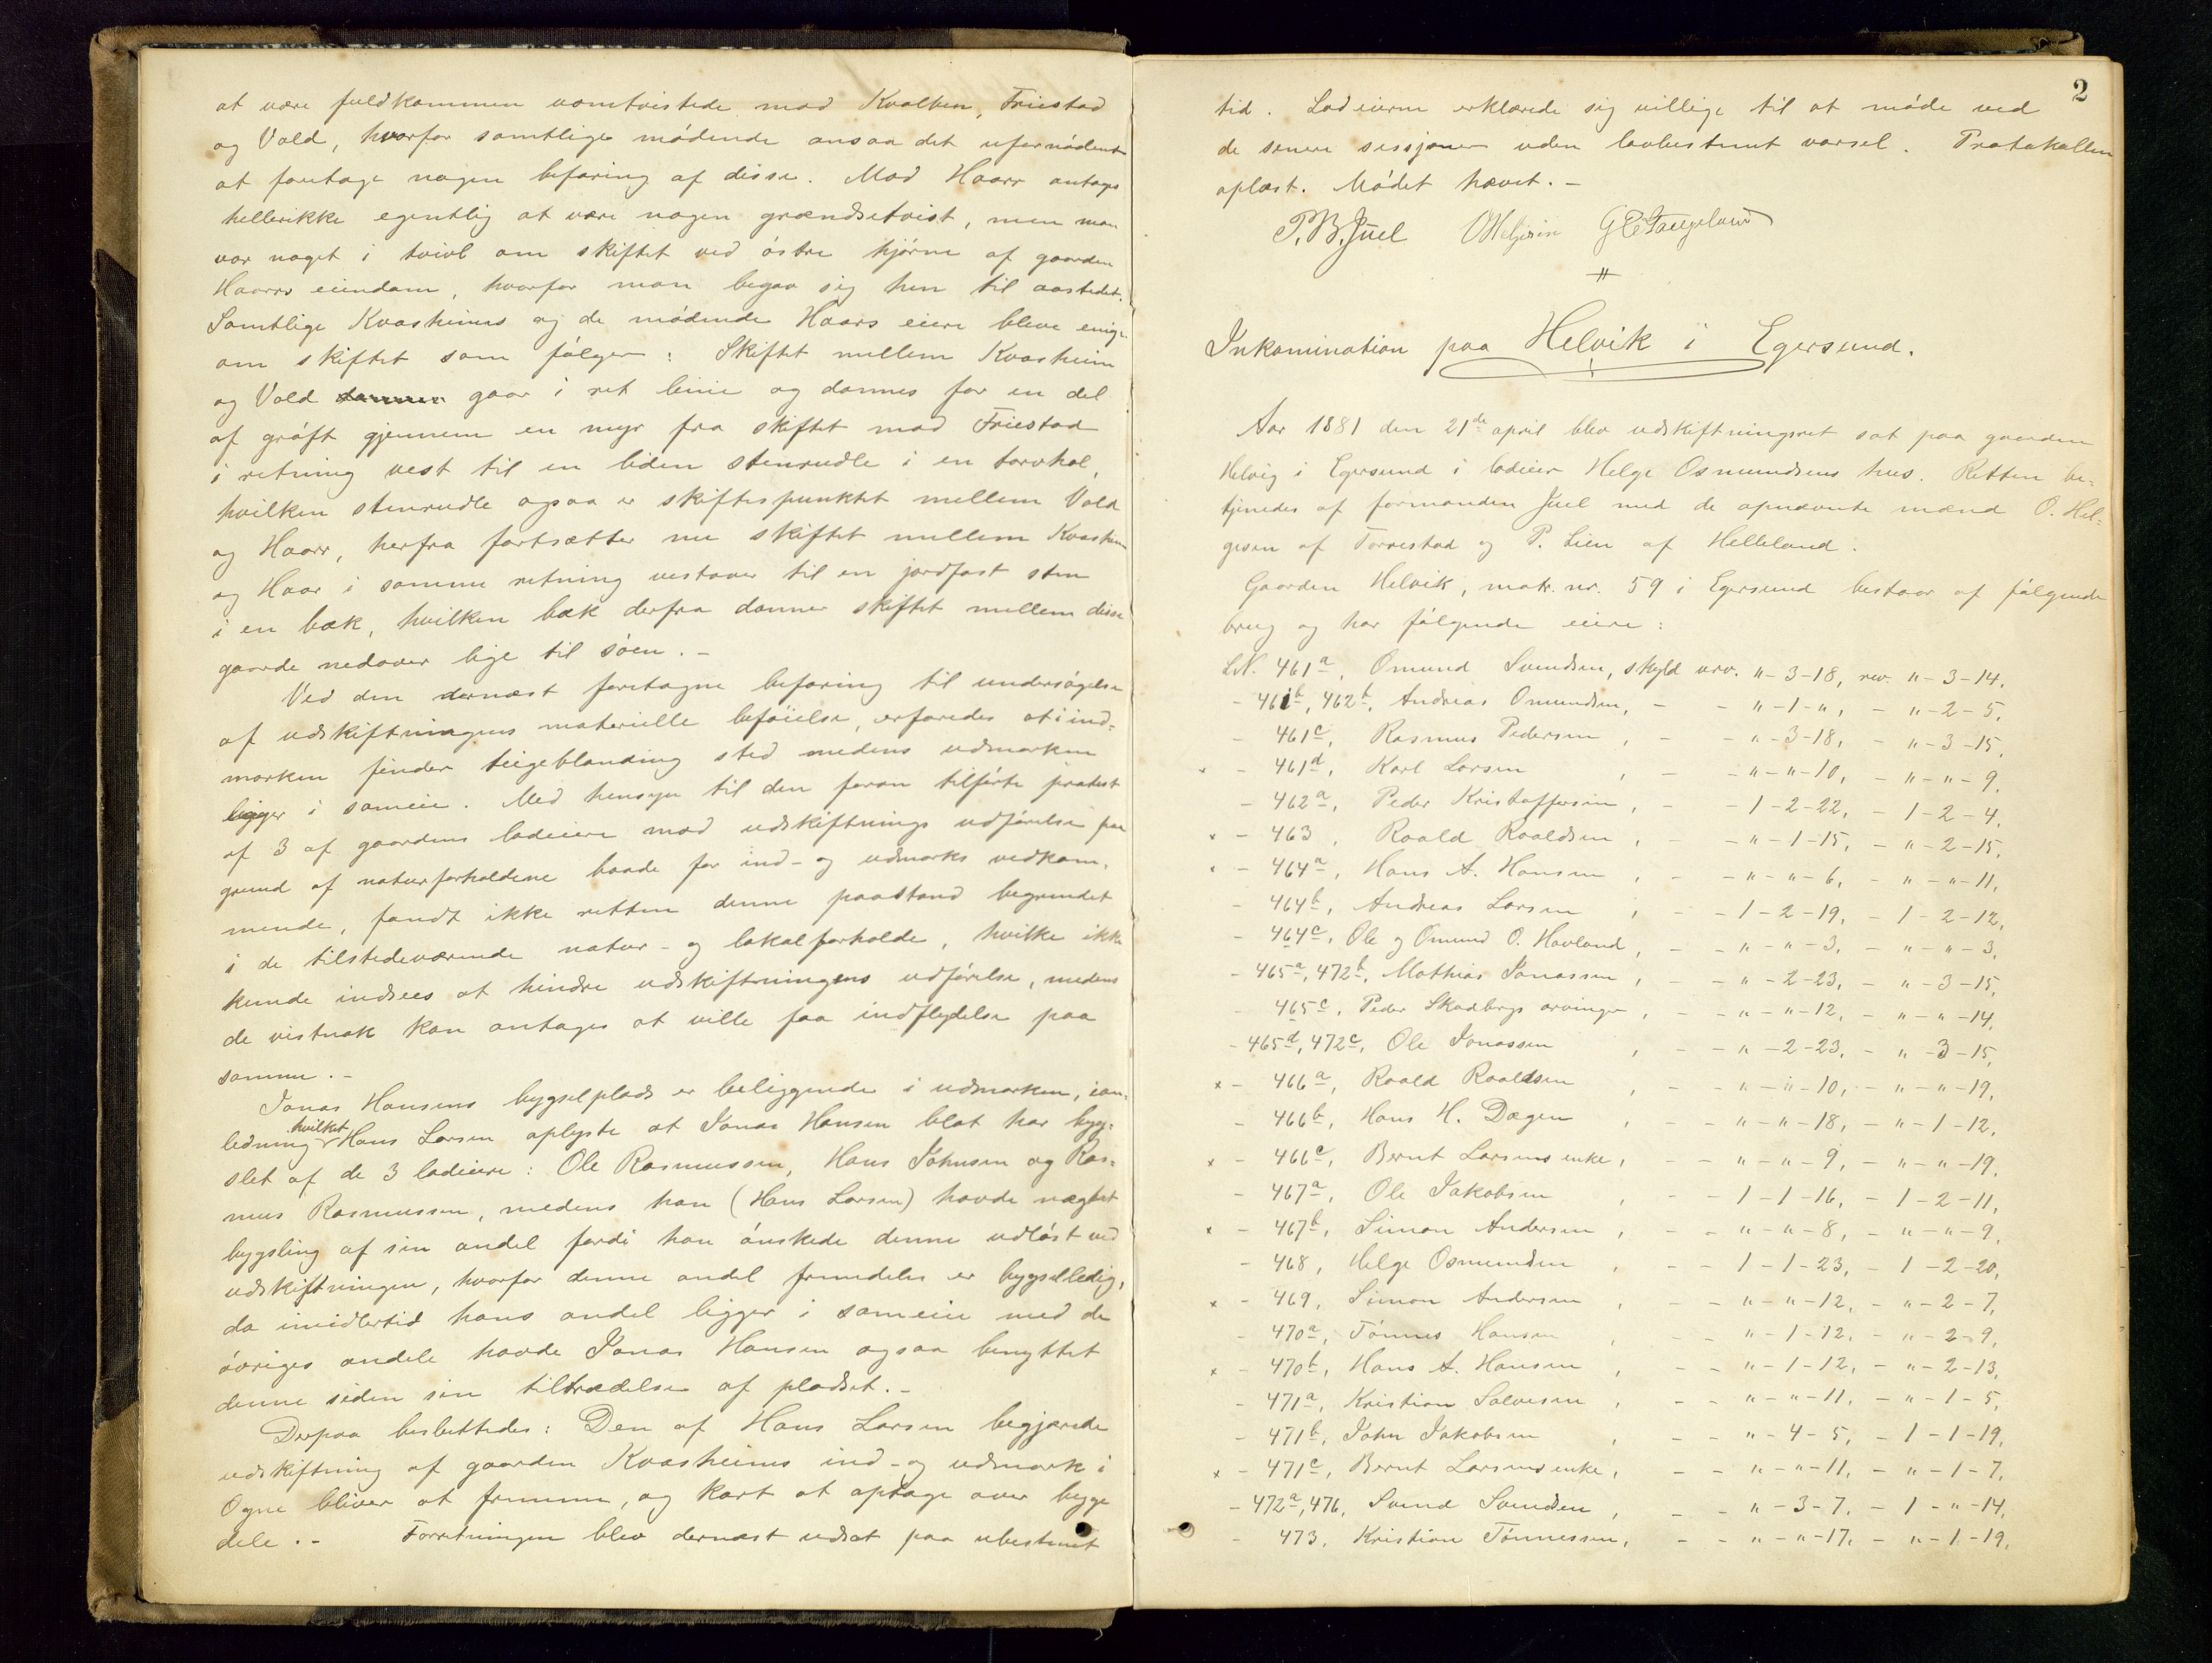 at være fuldkommen uomtvistede mod Kvalben, Friestad
og Vold, hvorfor samtlige mødende ansaa det ufornødent
at foretage nogen befaring af disse. Mod Haarr antages
hellerikke egentlig at være nogen grændsetvist, men man
var noget i tvivl om skiftet ved østre hjørne af gaarden
Haarrs eiendom, hvorfor man begav sig hen til aastedet.
Samtlige Kvasheims og de mødende Haars eiere bleve enige
om skiftet som følger: Skiftet mellem Kvasheim
og Vold gaar i ret linie og dannes for en del
af grøft gjennem en myr fra skiftet mod Friestad
i retning vest til en liden stenrudle i en torvhol,
hvilken stenrudle ogsaa er skiftespunktet mellem Vold
og Haarr, herfra fortsætter nu skiftet mellem Kvasheim
og Haar i samme retning vestover til en jordfast sten
i en bæk, hvilken bæk derfra danner skiftet mellem disse
gaarde nedover lige til søen. -
Ved den dernæst foretagne befaring til undersøgelse
af udskiftningens materielle beføielse, erfaredes at i ind-
marken finder teigeblanding sted medens udmarken
ligger i sameie. Med hensyn til den foran tilførte protest
af 3 af gaardens lodeiere mod udskiftnings udførelse paa
grund af naturforholdene baade for ind- og udmarks vedkom-
mende, fandt ikke retten denne paastand begrundet
i de tilstedeværende natur- og lokalforholde, hvilke ikke
kunde indsees at hindre udskiftningens udførelse, medens
de vistnok kan antages at ville faa indflydelse paa
samme. -
Jonas Hansens bygselplads er beliggende i udmarken, ian-
ledning hvilket Hans Larsen oplyste at Jonas Hansen blot har byg-
slet af de 3 lodeiere: Ole Rasmussen, Hans Johnsen og Ras-
mus Rasmussen, medens han (Hans Larsen) havde nægtet
bygsling af sin andel fordi han ønskede denne udløst ved
udskiftningen, hvorfor denne andel fremdeles er bygselledig,
da imidlertid hans andel ligger i sameie med de
øvriges andele havde Jonas Hansen ogsaa benyttet
denne siden sin tiltrædelse af pladset. -
Derpaa besluttedes: Den af Hans Larsen begjærede
udskiftning af gaarden Kvasheims ind- og udmark i
Ogne bliver at fremme, og kart at optage over begge
dele. - Forretningen blev dernæst udsat paa ubestemt
2
tid. Lodeierne erklærede sig villige til at møde ved
de senere sessjoner uden lovbestemt varsel. Protokollen
oplæst. Mødet hævet. -
P. B. Juel O Helgesen
Inkamination paa Helvik i Egersund.
Aar 1881 den 21de april blev udskiftningsret sat paa gaarden
Helvig i Egersund i lodeier Helge Osmundsens hus. Retten be-
tjenedes af formanden Juel med de opnævnte mænd O. Hel-
gesen af Torrestad og P. Lien af Helleland.
Gaarden Helvik, matr. nr. 59 i Egersund bestaar af følgende
brug og har følgende eiere:
LN. 461a, Omund Svendsen, skyld urv. " - 3 - 18, rev. " - 3 - 14.
- 461b, 462b, Andreas Omundsen, - - " - 1 - ", - " - 2 - 5.
- 461c, Rasmus Pedersen, - - " - 3 - 18, - " - 3 - 15.
x - 461d, Karl Larsen, - - " - " - 10, - " - " - 9.
- 462a, Peder Kristoffersen, - - 1 - 2 - 22, - 1 - 2 - 4.
x - 463, Roald Roaldsen, - - " - 1 - 15, - " - 2 - 15.
x - 464a, Hans A. Hansen, - - " - " - 6, - " - " - 11.
- 464b, Andreas Larsen, - - 1 - 2 - 19, - 1 - 2 - 12.
- 464c, Ole og Omund O. Hovland, - - " - " - 3, - " - " - 3.
- 465a, 472b, Mathias Jonassen, - - " - 2 - 23, - " - 3 - 15.
465c, Peder Skadbergs arvinger, - - " - " - 12, - " - " - 14.
- 465d, 472c, Ole Jonassen, - - " - 2 - 23, - " - 3 - 15.
x - 466a, Roald Roaldsen, - - " - " - 10, - " - " - 19.
- 466b, Hans H. Dægen, - - " - " - 18, - " - 1 - 12.
x - 466c, Bernt Larsens enke, - - " - " - 9, - " - " - 19.
- 467a, Ole Jakobsen, - - 1 - 1 - 16, - 1 - 2 - 11.
x - 467b, Simon Andersen, - - " - " - 8, - " - " - 9.
- 468, Helge Osmundsen, - - 1 - 1 - 23, - 1 - 2 - 20.
x - 469, Simon Andersen, - - " - " - 12, - " - 2 - 7.
- 470a, Tønnes Hansen, - - " - 1 - 12, - " - 2 - 9.
x - 470b, Hans A. Hansen, - - " - 1 - 12, - " - 2 - 13.
- 471a, Kristian Salvesen, - - " - " - 11, - " - 1 - 5.
- 471b, John Jakobsen, - - " - 4 - 5, - 1 - 1 - 19.
x - 471c, Bernt Larsens enke, - - " - " - 11, - " - 1 - 7.
- 472a, 476, Svend Svendsen, - - " - 3 - 7, - 1 - " - 14.
- 473, Kristian Tønnessen, - - " - " - 17, - " - 1 - 19.